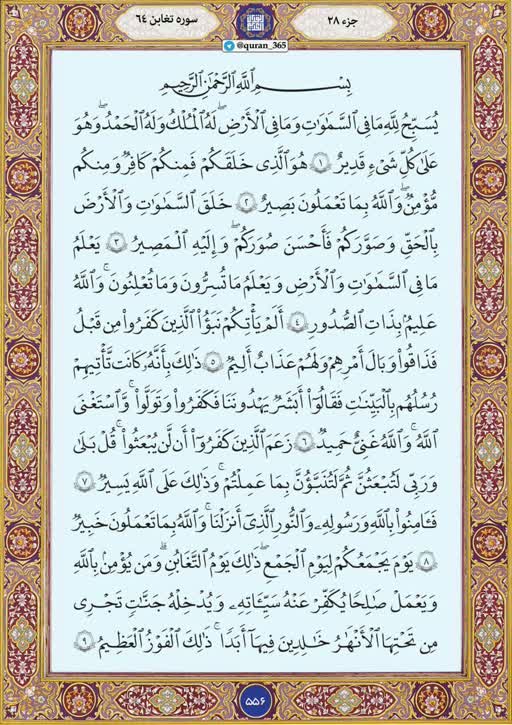 جزء ۲۸
سوره تغابن ۶۴
@quran_365
بِسْمِ اللَّهِ الرَّحْمَٰنِ الرَّحِيمِ
يُسَبِّحُ لِلَّهِ مَا فِي السَّمَٰوَٰتِ وَمَا فِي الْأَرْضِ ۖ لَهُ الْمُلْكُ وَلَهُ الْحَمْدُ ۖ وَهُوَ
عَلَىٰ كُلِّ شَيْءٍ قَدِيرٌ ۝١ هُوَ الَّذِي خَلَقَكُمْ فَمِنكُمْ كَافِرٌ وَمِنكُم
مُّؤْمِنٌ ۚ وَاللَّهُ بِمَا تَعْمَلُونَ بَصِيرٌ ۝٢ خَلَقَ السَّمَٰوَٰتِ وَالْأَرْضَ
بِالْحَقِّ وَصَوَّرَكُمْ فَأَحْسَنَ صُوَرَكُمْ ۖ وَإِلَيْهِ الْمَصِيرُ ۝٣ يَعْلَمُ
مَا فِي السَّمَٰوَٰتِ وَالْأَرْضِ وَيَعْلَمُ مَا تُسِرُّونَ وَمَا تُعْلِنُونَ ۚ وَاللَّهُ
عَلِيمٌ بِذَاتِ الصُّدُورِ ۝٤ أَلَمْ يَأْتِكُمْ نَبَؤُا۟ الَّذِينَ كَفَرُوا۟ مِن قَبْلُ
فَذَاقُوا۟ وَبَالَ أَمْرِهِمْ وَلَهُمْ عَذَابٌ أَلِيمٌ ۝٥ ذَٰلِكَ بِأَنَّهُ كَانَت تَّأْتِيهِمْ
رُسُلُهُم بِالْبَيِّنَٰتِ فَقَالُوٓا۟ أَبَشَرٌ يَهْدُونَنَا فَكَفَرُوا۟ وَتَوَلَّوا۟ ۚ وَّاسْتَغْنَى
اللَّهُ ۚ وَاللَّهُ غَنِيٌّ حَمِيدٌ ۝٦ زَعَمَ الَّذِينَ كَفَرُوٓا۟ أَن لَّن يُبْعَثُوا۟ ۚ قُلْ بَلَىٰ
وَرَبِّي لَتُبْعَثُنَّ ثُمَّ لَتُنَبَّؤُنَّ بِمَا عَمِلْتُمْ ۚ وَذَٰلِكَ عَلَى اللَّهِ يَسِيرٌ ۝٧
فَـَٔامِنُوا۟ بِاللَّهِ وَرَسُولِهِۦ وَالنُّورِ الَّذِيٓ أَنزَلْنَا ۚ وَاللَّهُ بِمَا تَعْمَلُونَ خَبِيرٌ
۝٨ يَوْمَ يَجْمَعُكُمْ لِيَوْمِ الْجَمْعِ ۖ ذَٰلِكَ يَوْمُ التَّغَابُنِ ۗ وَمَن يُؤْمِنۢ بِاللَّهِ
وَيَعْمَلْ صَٰلِحًا يُكَفِّرْ عَنْهُ سَيِّـَٔاتِهِۦ وَيُدْخِلْهُ جَنَّٰتٍ تَجْرِي
مِن تَحْتِهَا الْأَنْهَٰرُ خَٰلِدِينَ فِيهَآ أَبَدًا ۚ ذَٰلِكَ الْفَوْزُ الْعَظِيمُ ۝٩
۵۵۶